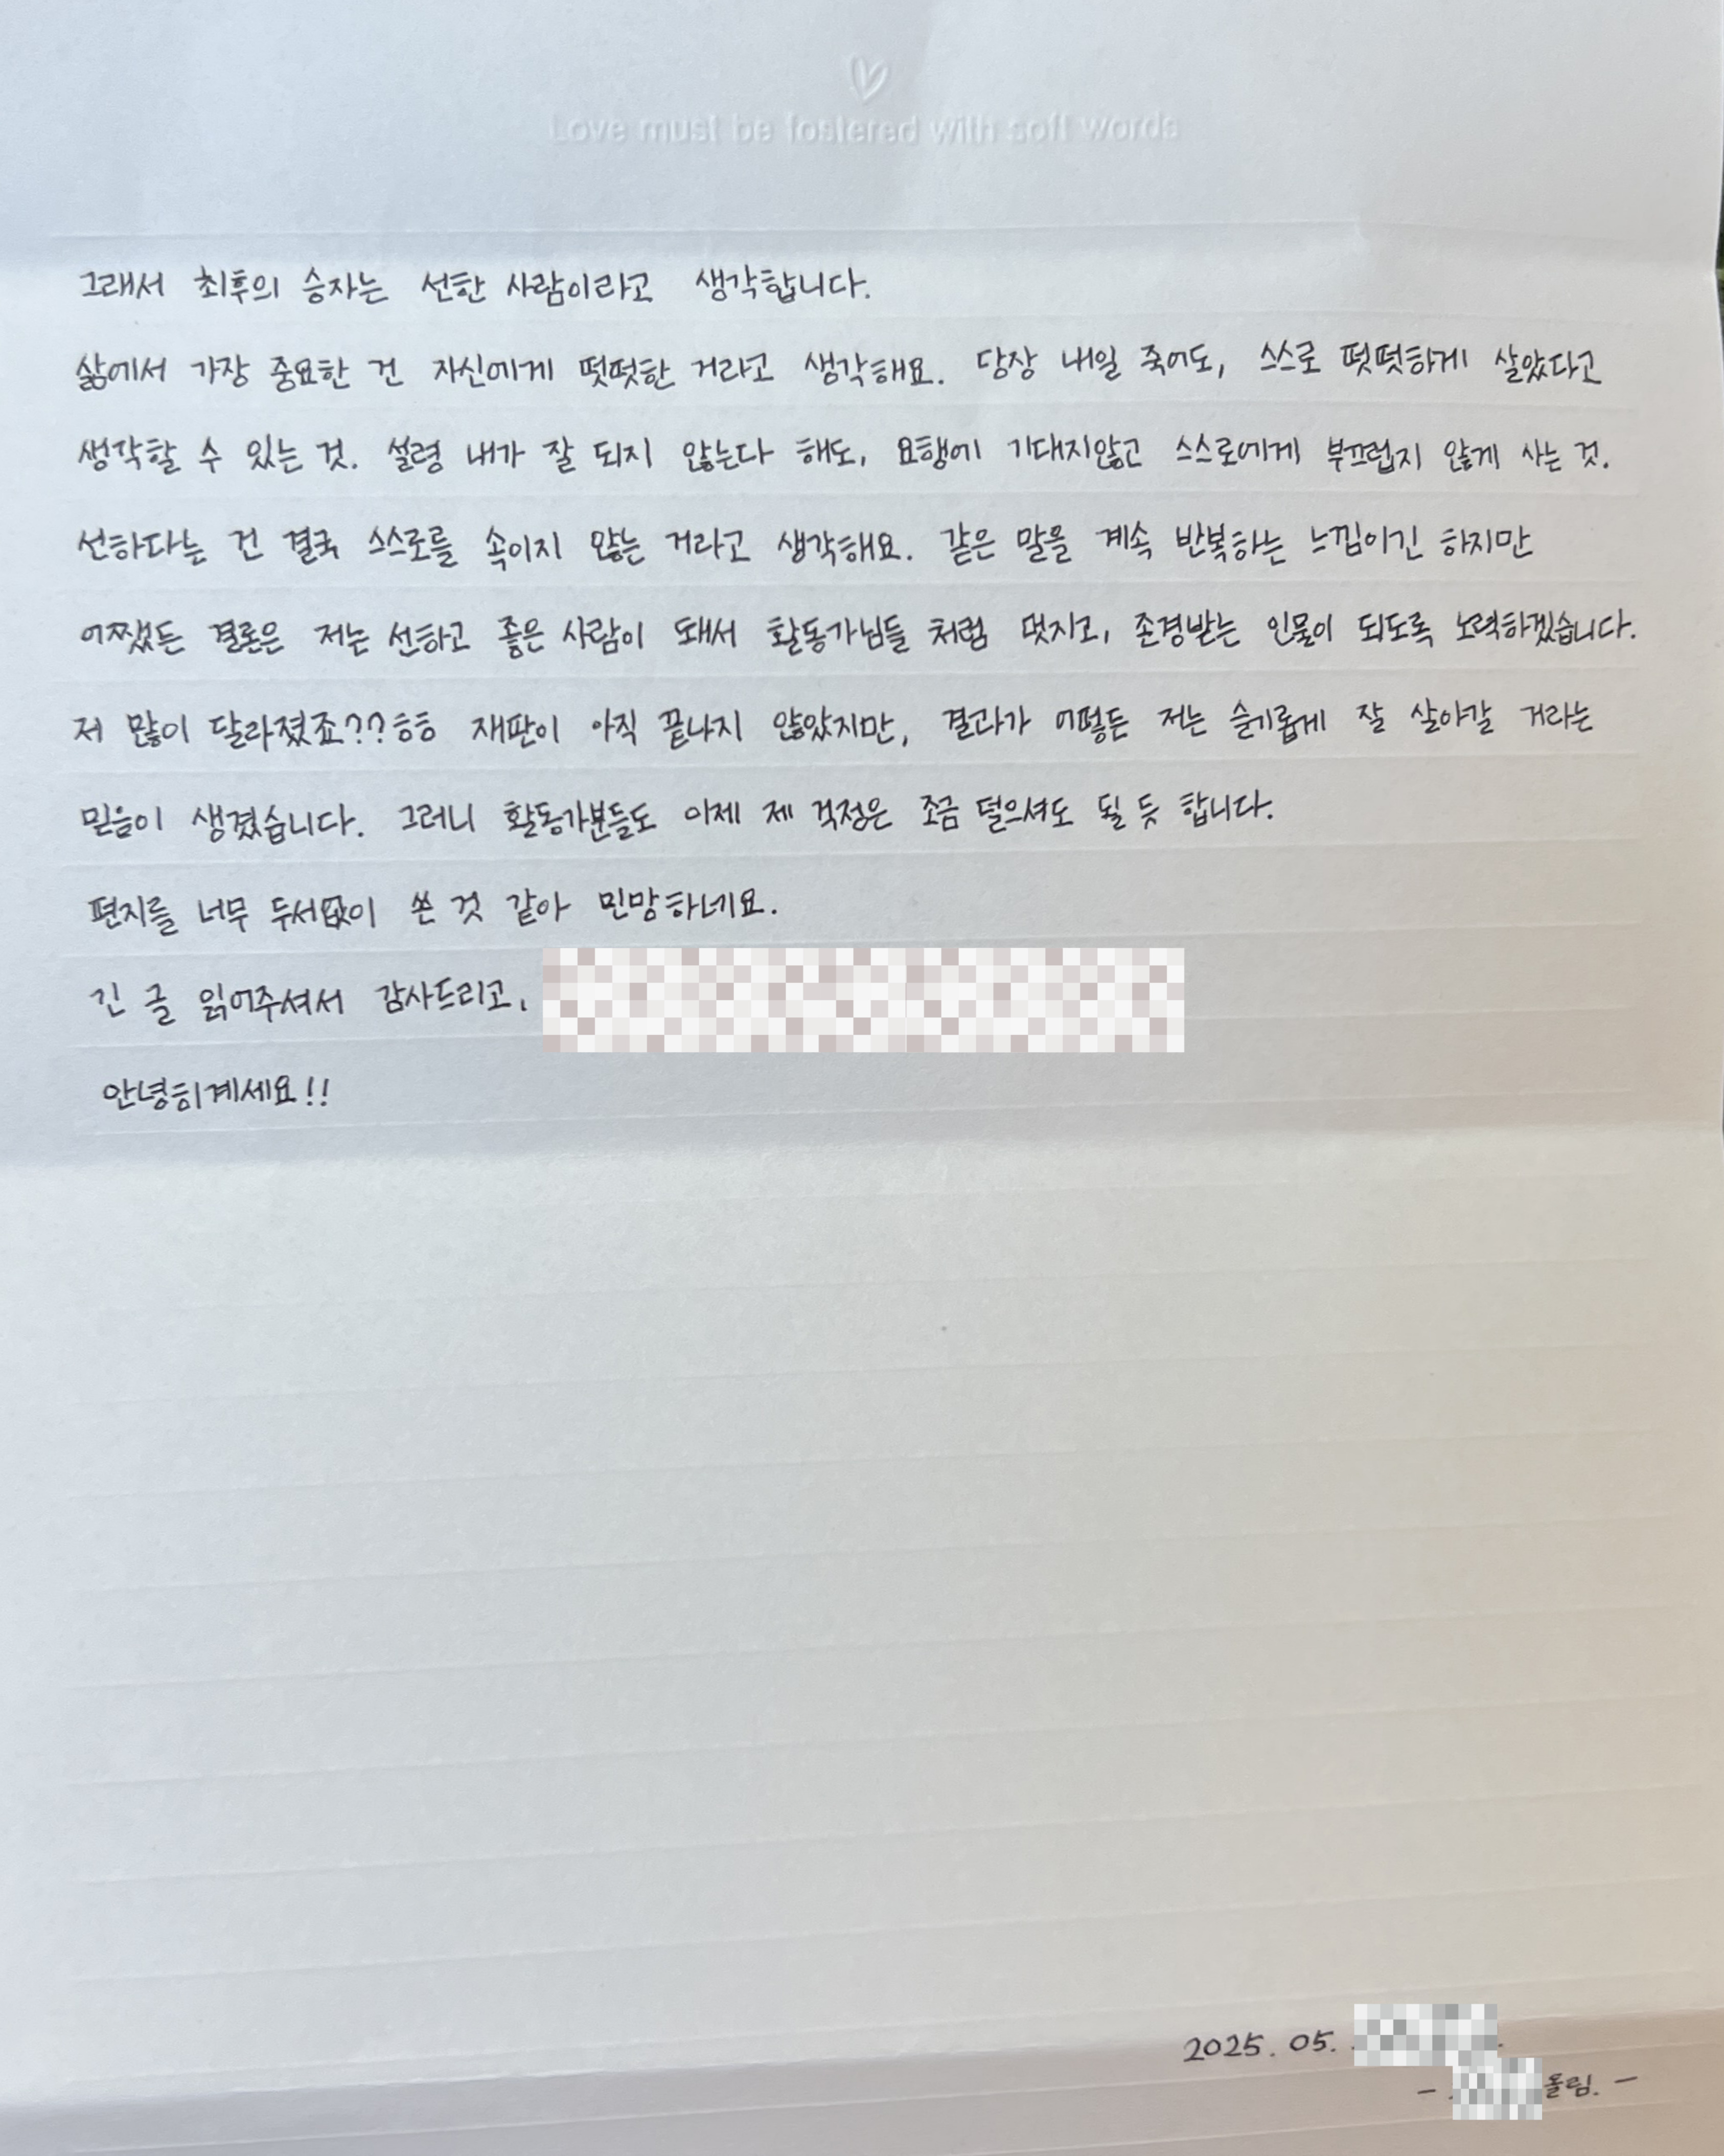 Love must be fostered with soft words
그래서 최후의 승자는 선한 사람이라고 생각합니다.
삶에서 가장 중요한 건 자신에게 떳떳한 거라고 생각해요. 당장 내일 죽어도, 스스로 떳떳하게 살았다고
생각할 수 있는 것. 설령 내가 잘 되지 않는다 해도, 요행에 기대지않고 스스로에게 부끄럽지 않게 사는 것.
선하다는 건 결국 스스로를 속이지 않는 거라고 생각해요. 같은 말을 계속 반복하는 느낌이긴 하지만
어쨌든 결론은 저는 선하고 좋은 사람이 돼서 활동가님들 처럼 멋지고, 존경받는 인물이 되도록 노력하겠습니다.
저 많이 달라졌죠??ㅎㅎ 재판이 아직 끝나지 않았지만, 결과가 어떻든 저는 슬기롭게 잘 살아갈 거라는
믿음이 생겼습니다. 그러니 활동가분들도 이제 제 걱정은 조금 덜으셔도 될 듯 합니다.
편지를 너무 두서없이 쓴 것 같아 민망하네요.
긴 글 읽어주셔서 감사드리고,
안녕히계세요!!
2025. 05.
- 올림. -